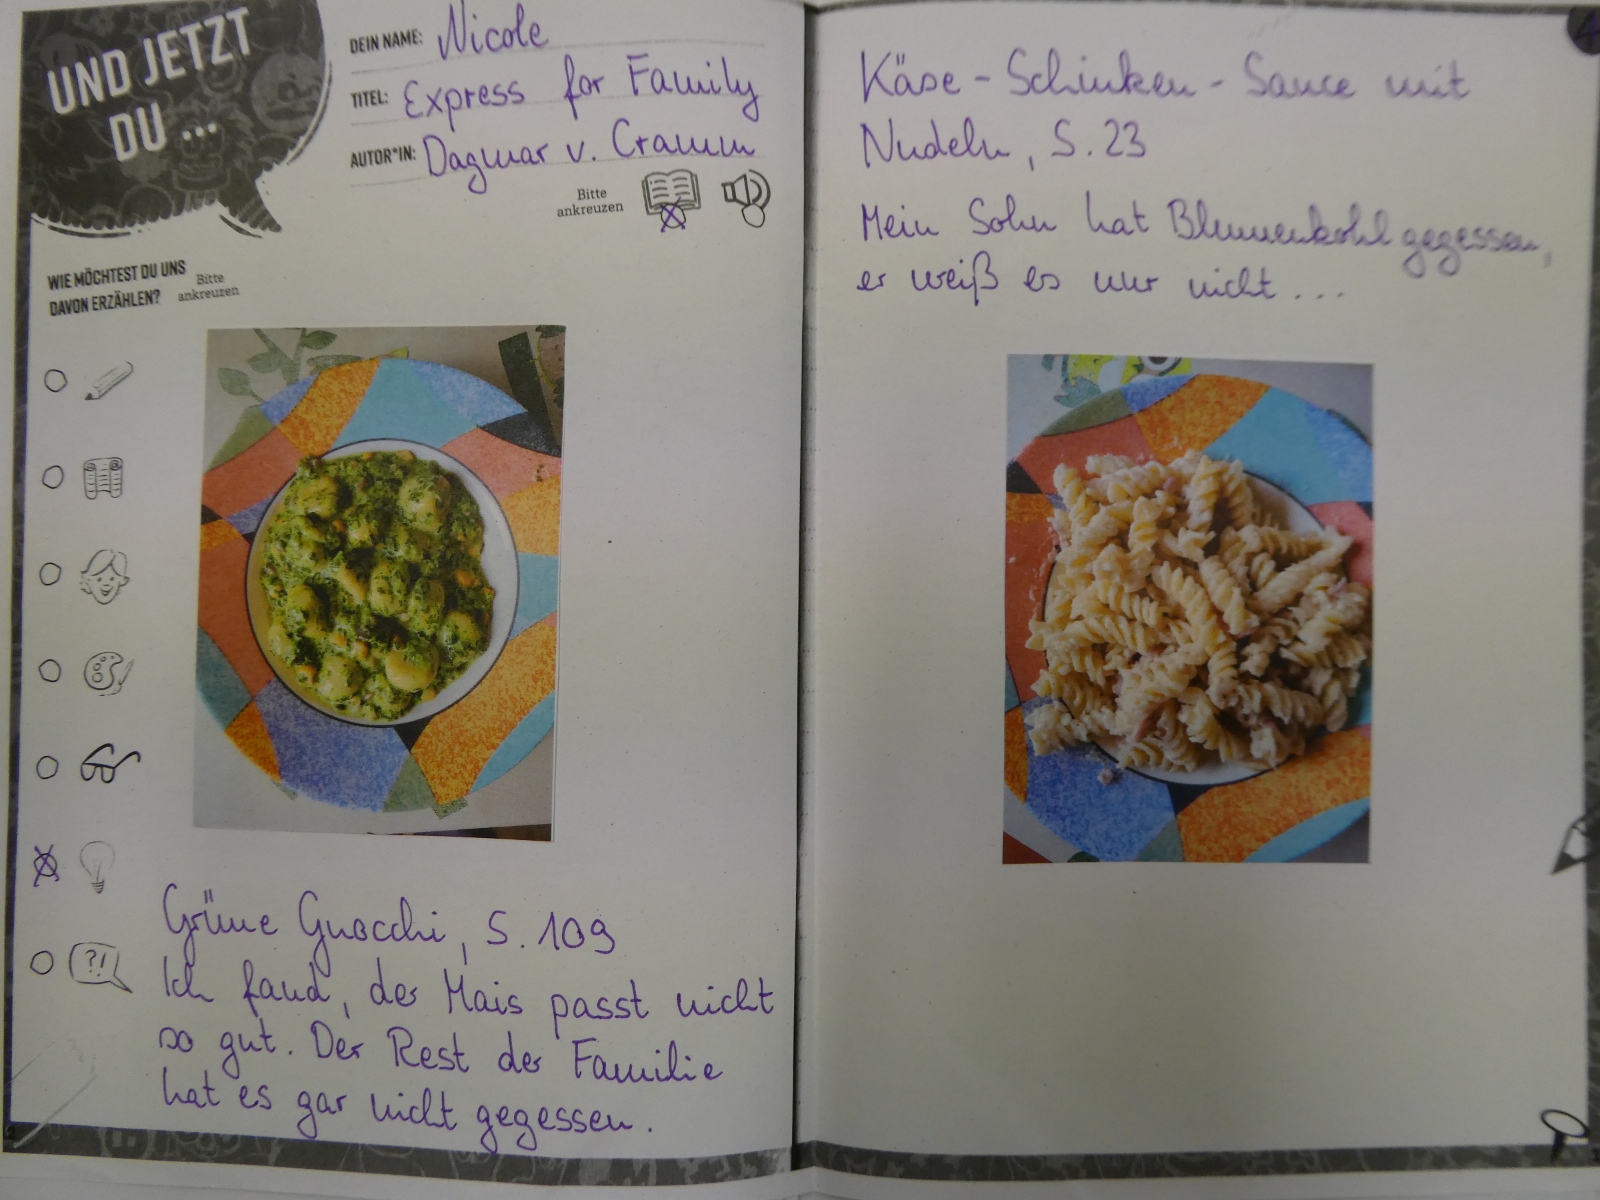 UND JETZT
DU ...
DEIN NAME: Nicole
TITEL: Express for Family
AUTOR*IN: Dagmar v. Cramm
Bitte
ankreuzen
WIE MÖCHTEST DU UNS
DAVON ERZÄHLEN?
Bitte
ankreuzen
?!
Grüne Gnocchi, S. 109
Ich fand, der Mais passt nicht
so gut. Der Rest der Familie
hat es gar nicht gegessen.
Käse-Schinken-Sauce mit
Nudeln, S. 23
Mein Sohn hat Blumenkohl gegessen,
er weiß es nur nicht ...